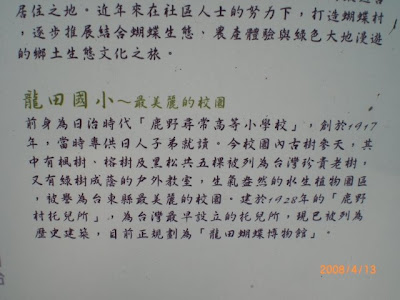 居住之地。近年來在社區人士的努力下，打造蝴蝶村
，逐步推展結合蝴蝶生態、農產體驗與綠色大地漫遊
的鄉土生態文化之旅。
龍田國小～最美麗的校園
前身為日治時代「鹿野尋常高等小學校」，創於1917
年，當時專供日人子弟就讀。今校園內古樹參天，其
中有楓樹、榕樹及黑松共五棵被列為台灣珍貴老樹，
又有綠樹成蔭的戶外教室，生氣盎然的水生植物園區
，被譽為台東縣最美麗的校園。建於1928年的「鹿野
村托兒所」，為台灣最早設立的托兒所，現已被列為
歷史建築，目前正規劃為「龍田蝴蝶博物館」。
2008/4/13